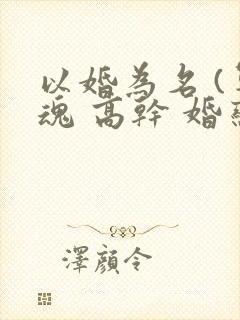 以婚為名(
魂 高幹 婚
澤顏令